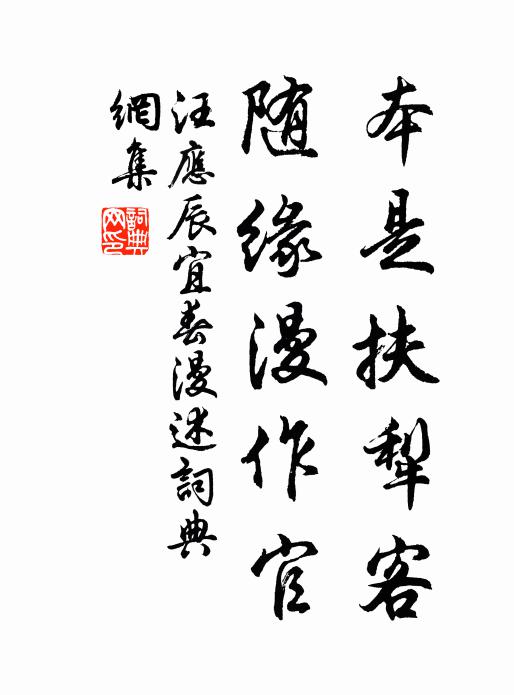 本是扶犁客
随缘漫作官
汪應辰宜春漫述詞典
網集
詞典
网印